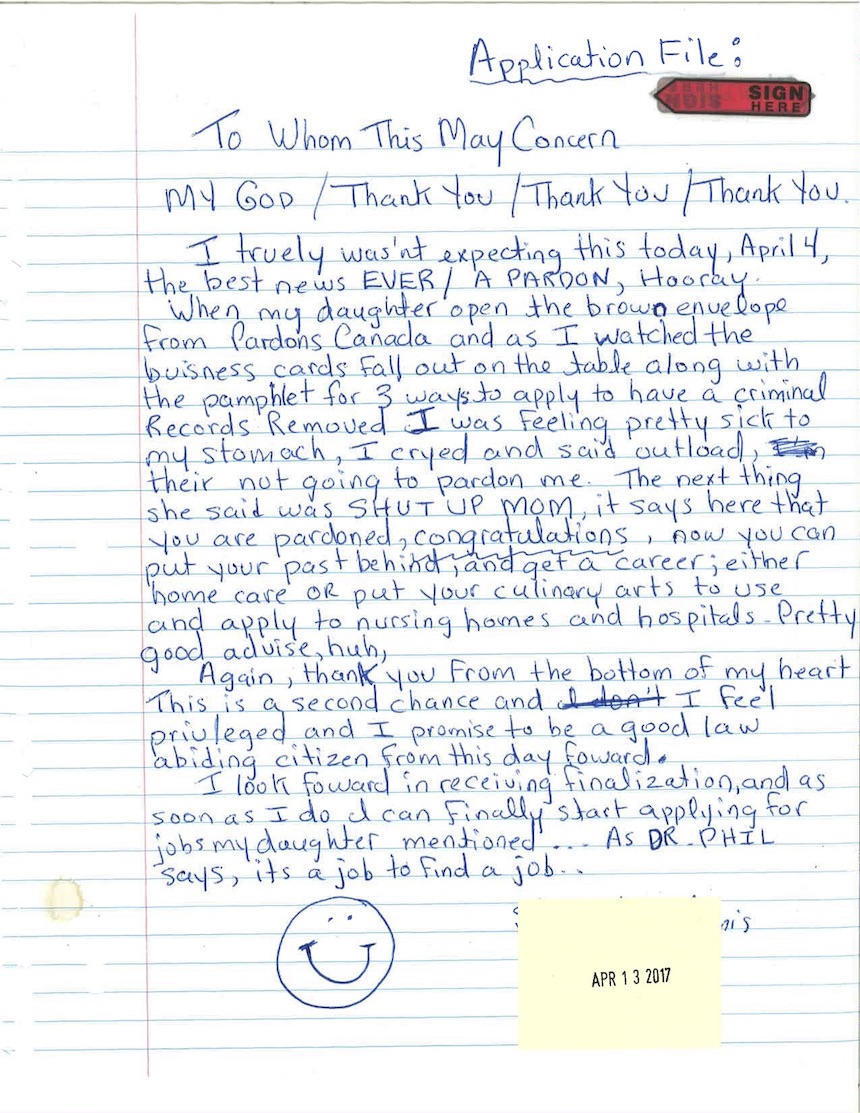 Application File:
SIGN
HERE
To Whom This May Concern
MY GOD / Thank You / Thank You / Thank You.
I truely was'nt expecting this today, April 4,
the best news EVER / A PARDON, Hooray.
When my daughter open the brown envelope
from Pardons Canada and as I watched the
buisness cards fall out on the table along with
the pamphlet for 3 ways to apply to have a criminal
Records Removed I was feeling pretty sick to
my stomach, I cryed and said outload,
their not going to pardon me. The next thing
she said was SHUT UP MOM, it says here that
you are pardoned, congratulations, now you can
put your past behind, and get a career; either
home care OR put your culinary arts to use
and apply to nursing homes and hospitals. Pretty
good advise, huh,
Again, thank you From the bottom of my heart
This is a second chance and I don't I feel
privleged and I promise to be a good law
abiding citizen from this day foward.
I look foward in receiving finalization, and as
soon as I do I can finally start applying for
jobs my daughter mentioned... As DR. PHIL
says, its a job to find a job..
APR 13 2017